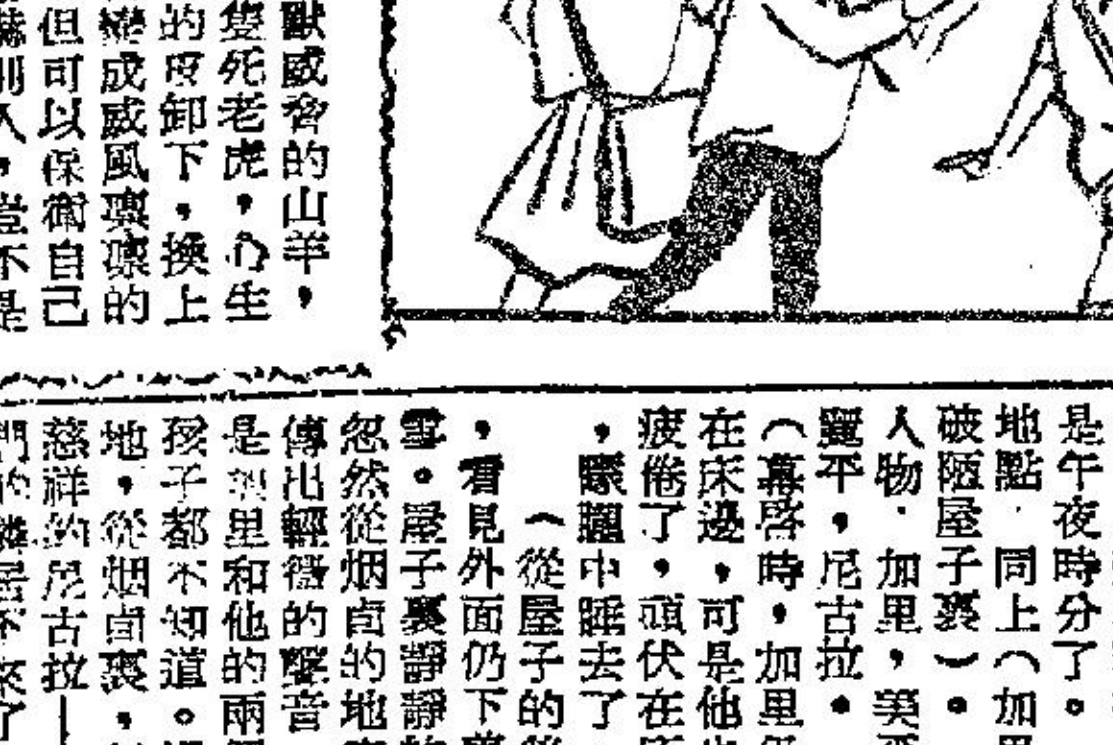 獸威脅的山羊，
隻死老虎，心生
的皮卸下，換上
變成威風凜凜的
但可以保衛自己
嚇別人，豈不是
是午夜時分了。
地點．同上（加里
破陋屋子裏）。
人物．加里，美
麗平，尼古拉。
（幕啓時，加里
在床邊，可是他
疲倦了，頭伏在
，朦朧中睡去了
（從屋子的
，看見外面仍下
雪。屋子裏靜靜
忽然從烟囪的地
傳出輕微的聲音
是加里和他的兩個
孩子都不知道。
地，從烟囪裏，
慈祥的尼古拉—
門的